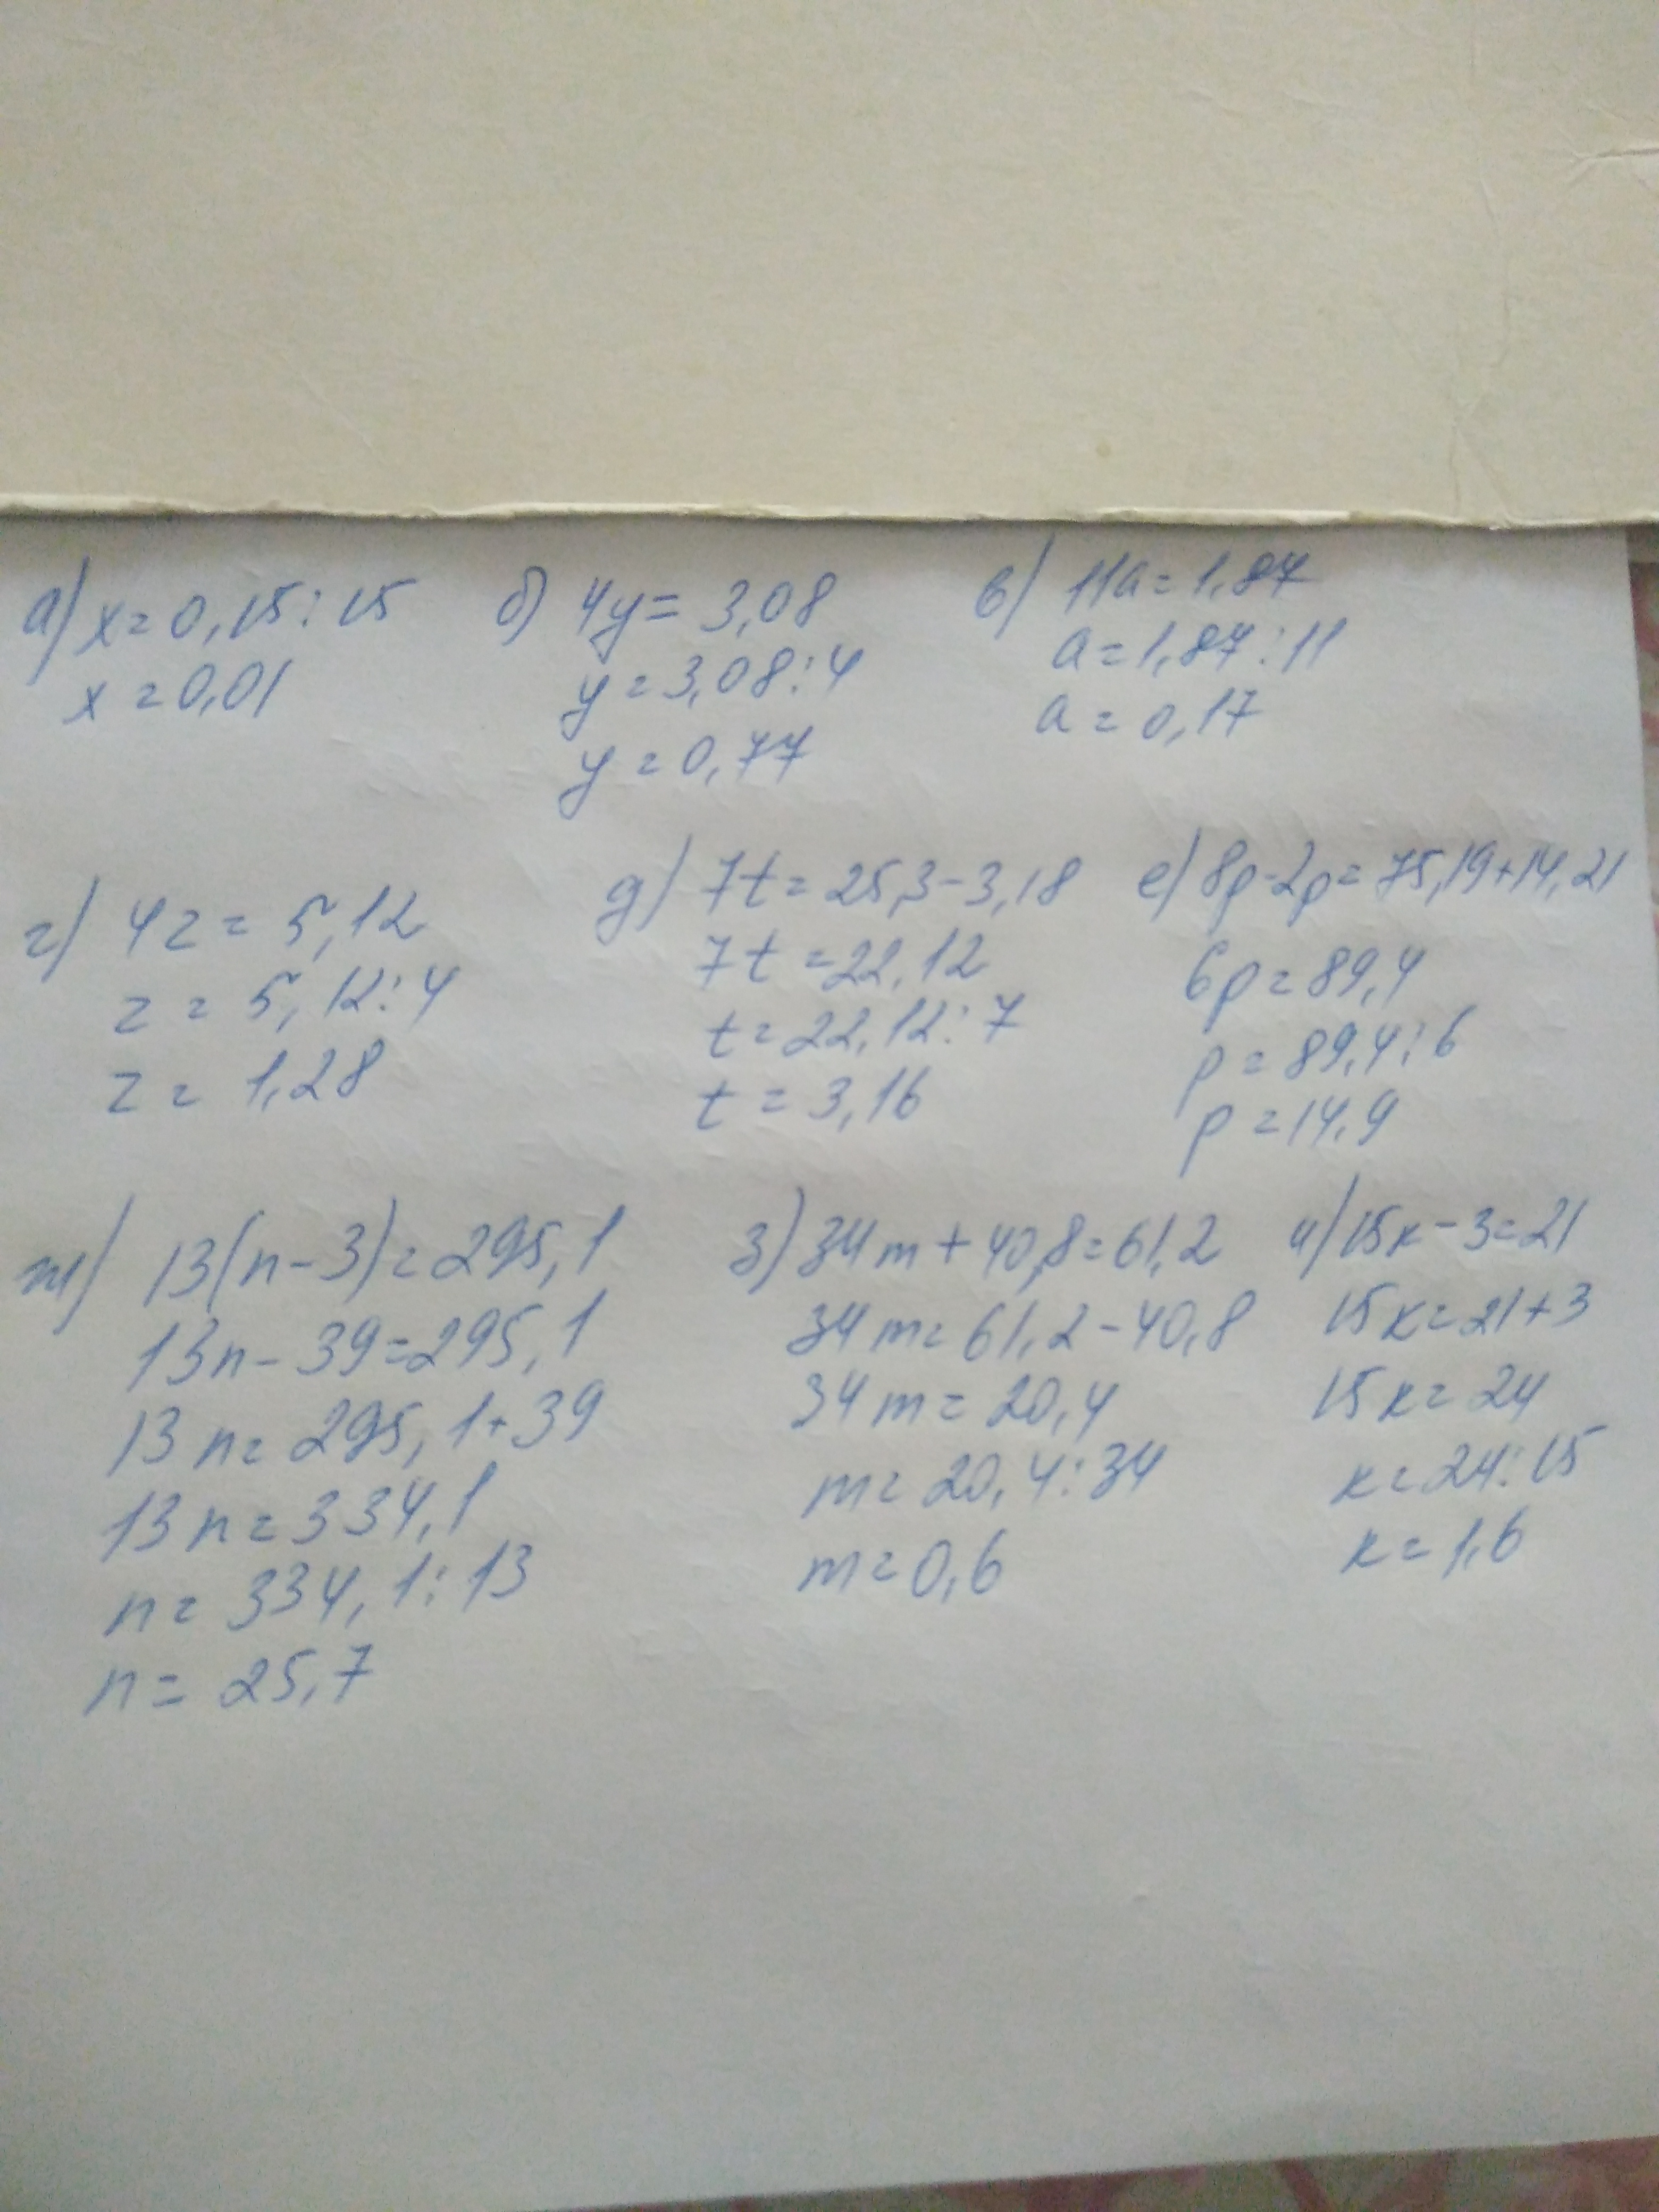 а) x=0,15:15
x=0,01
б) 4y=3,08
y=3,08:4
y=0,77
в) 11a=1,87
a=1,87:11
a=0,17
г) 4z=5,12
z=5,12:4
z=1,28
д) 7t=25,3-3,18
7t=22,12
t=22,12:7
t=3,16
е) 8p-2p=75,19+14,21
6p=89,4
p=89,4:6
p=14,9
ж) 13(n-3)=295,1
13n-39=295,1
13n=295,1+39
13n=334,1
n=334,1:13
n=25,7
з) 34m+40,8=61,2
34m=61,2-40,8
34m=20,4
m=20,4:34
m=0,6
и) 15k-3=21
15k=21+3
15k=24
k=24:15
k=1,6